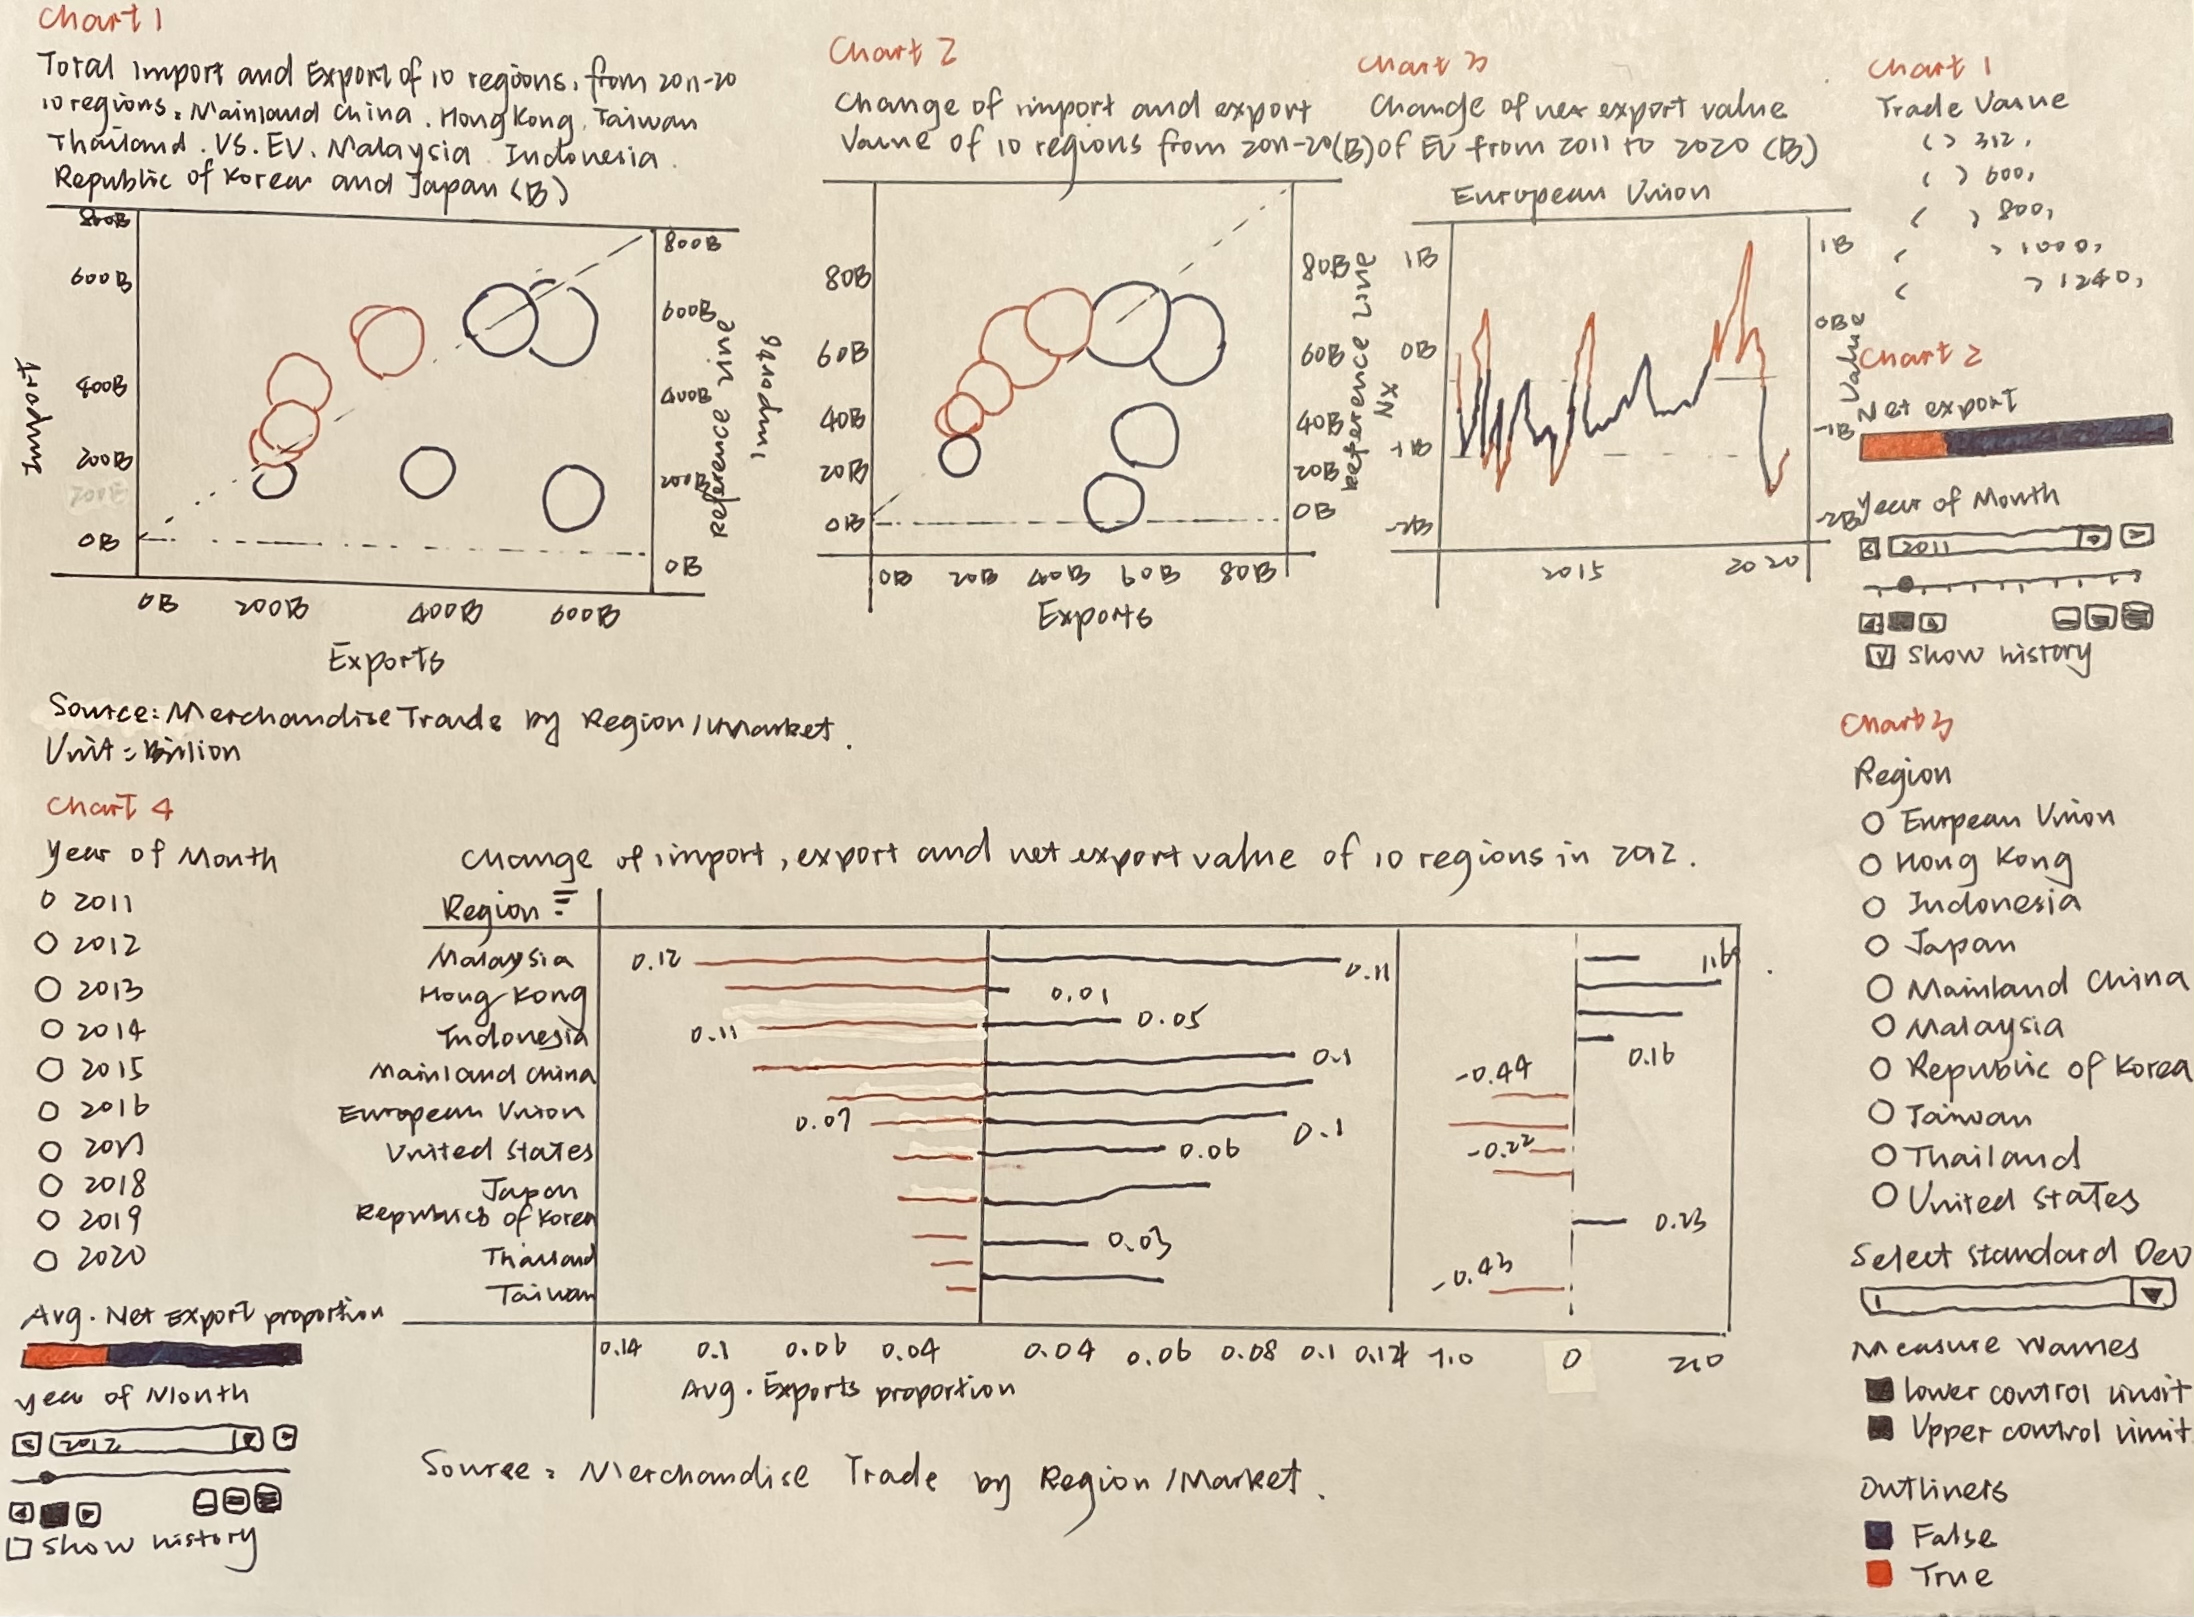 Chart 1
Total import and Export of 10 regions, from 2011-20
10 regions: Mainland China, Hong Kong, Taiwan
Thailand. VS. EV. Malaysia. Indonesia.
Republic of Korea and Japan (B)
800B
600B
400B
200B
200B
0B
Import
0B 200B 400B 600B
Exports
800B
600B
400B
200B
0B
Reference Line
Imports
Source: Merchandise Trade by Region/Market.
Unit = Billion
Chart 2
Change of import and export
value of 10 regions from 2011-20(B)
80B
60B
40B
20B
0B
0B 20B 40B 60B 80B
Exports
80B
60B
40B
20B
0B
Reference Line
Chart 3
Change of net export value
of EU from 2011 to 2020 (B)
European Union
1B
0B
-1B
-2B
NX
2015 2020
1B
0B
-1B
-2B
Value
Chart 1
Trade Value
( ) 312,
( ) 600,
( ) 800,
( ) 1000,
( ) 1240,
Chart 2
Net export
Year of Month
2011
Show history
Chart 3
Region
European Union
Hong Kong
Indonesia
Japan
Mainland China
Malaysia
Republic of Korea
Taiwan
Thailand
United States
Select Standard Dev
1
Measure Names
lower control limit
Upper control limit
Outliners
False
True
Chart 4
Year of Month
2011
2012
2013
2014
2015
2016
2017
2018
2019
2020
Avg. Net Export proportion
Year of Month
2012
Show history
Change of import, export and net export value of 10 regions in 2012.
Region
Malaysia 0.12 0.11
Hong Kong 0.01
Indonesia 0.11 0.05 0.16
Mainland China 0.1 -0.44
European Union 0.07 0.1
United States 0.06 -0.22
Japan
Republics of Korea 0.23
Thailand 0.03
Taiwan -0.43
0.14 0.1 0.06 0.04 0.04 0.06 0.08 0.1 0.12 1.0 0 2.0
Avg. Exports proportion
Source = Merchandise Trade by Region/Market.